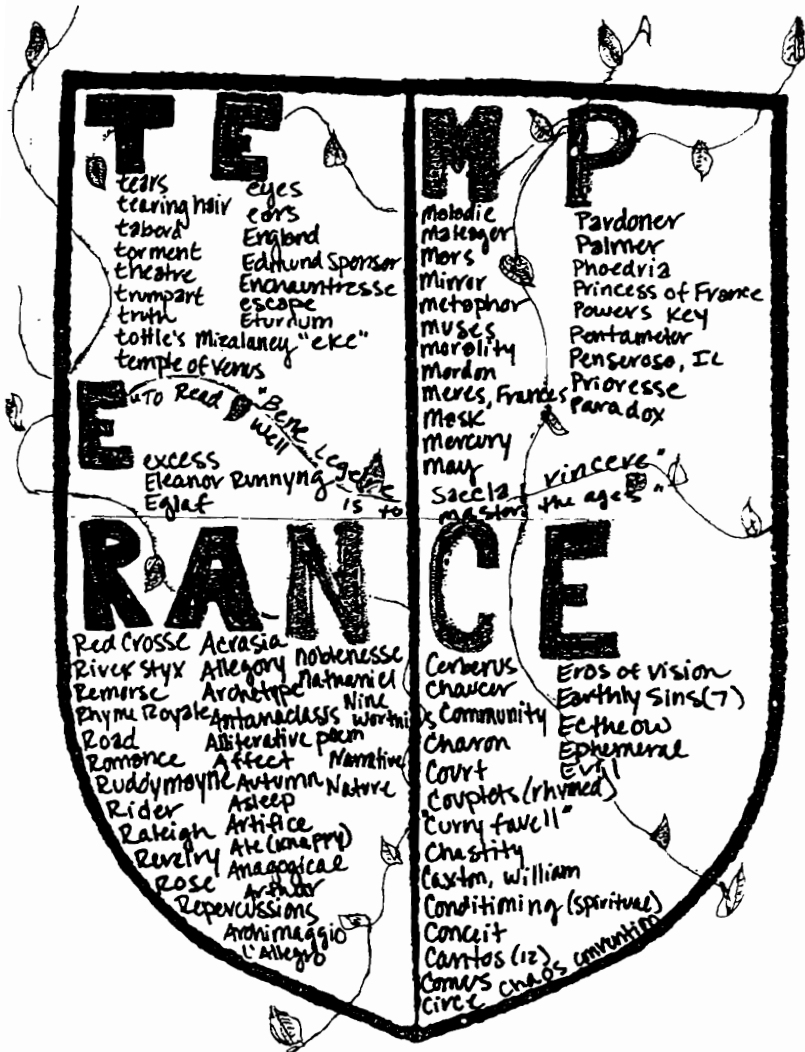 TE
tears
tearing hair
tabord
torment
theatre
trumpart
truth
tottle's Mizalaney
temple of Venus
eyes
ears
England
Edmund Sponsor
Enchauntresse
escape
Eturnum
"eke"
MP
Melodie
Maleager
Mars
Mirror
metaphor
muses
morality
Mordon
Meres, Frances
Mask
Mercury
May
Pardoner
Palmer
Phoedria
Princess of France
Powers Key
Pentameter
Penseroso, Il
Prioresse
Paradox
E
excess
Eleanor Runnyng
Eglaf
"Bene Legere
Saecla vincere"
"To Read Well
is to master the ages"
RAN
Red Crosse
River Styx
Remorse
Rhyme Royale
Road
Romance
Ruddymayne
Rider
Raleigh
Revelry
Rose
Repercussions
Acrasia
Allegory
Archetype
Antanaclasis
Alliterative poem
Affect
Autumn
Asleep
Artifice
Ate (Knappy)
Anagogical
Arthur
Archimaggio
L'Allegro
noblenesse
Nathaniel
Nine worthies
Narrative
Nature
CE
Cerberus
Chaucer
Community
Charon
Court
Couplets (rhymed)
"Curry favell"
Chastity
Caxton, William
Conditioning (spiritual)
Conceit
Cantos (12)
Comus
Circe
chaos
convention
Eros of vision
Earthly Sins (7)
Ectheow
Ephemeral
Evil